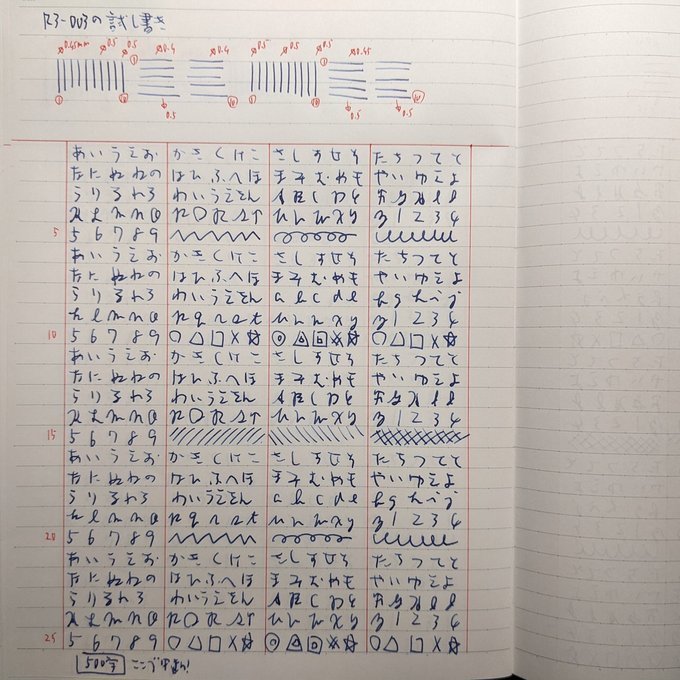 の試し書き
⌀0.45mm ⌀0.5 ⌀0.5 ⌀0.4 ⌀0.4 ⌀0.5 ⌀0.5 ⌀0.5 ⌀0.45
① ⑩ 0.5 ⑩ ① ⑩ 0.5 0.5 ⑩
あいうえお かきくけこ さしすせそ たちつてと
なにぬねの はひふへほ まみむめも やいゆえよ
らりるれろ わいうえをん ABCDE FGHIJ
KLMNO PQRST UVWXY Z1234
5 56789
あいうえお かきくけこ さしすせそ たちつてと
なにぬねの はひふへほ まみむめも やいゆえよ
らりるれろ わいうえをん abcde fghij
klmno pqrst uvwxy z1234
10 56789 ○△□×☆ ○△□×☆ ○△□×☆
あいうえお かきくけこ さしすせそ たちつてと
なにぬねの はひふへほ まみむめも やいゆえよ
らりるれろ わいうえをん ABCDE FGHIJ
KLMNO PQRST UVWXY Z1234
15 56789
あいうえお かきくけこ さしすせそ たちつてと
なにぬねの はひふへほ まみむめも やいゆえよ
らりるれろ わいうえをん abcde fghij
klmno pqrst uvwxy z1234
20 56789
あいうえお かきくけこ さしすせそ たちつてと
なにぬねの はひふへほ まみむめも やいゆえよ
らりるれろ わいうえをん ABCDE FGHIJ
KLMNO PQRST UVWXY Z1234
25 56789 ○△□×☆ ○△□×☆ ○△□×☆
500字 ここで